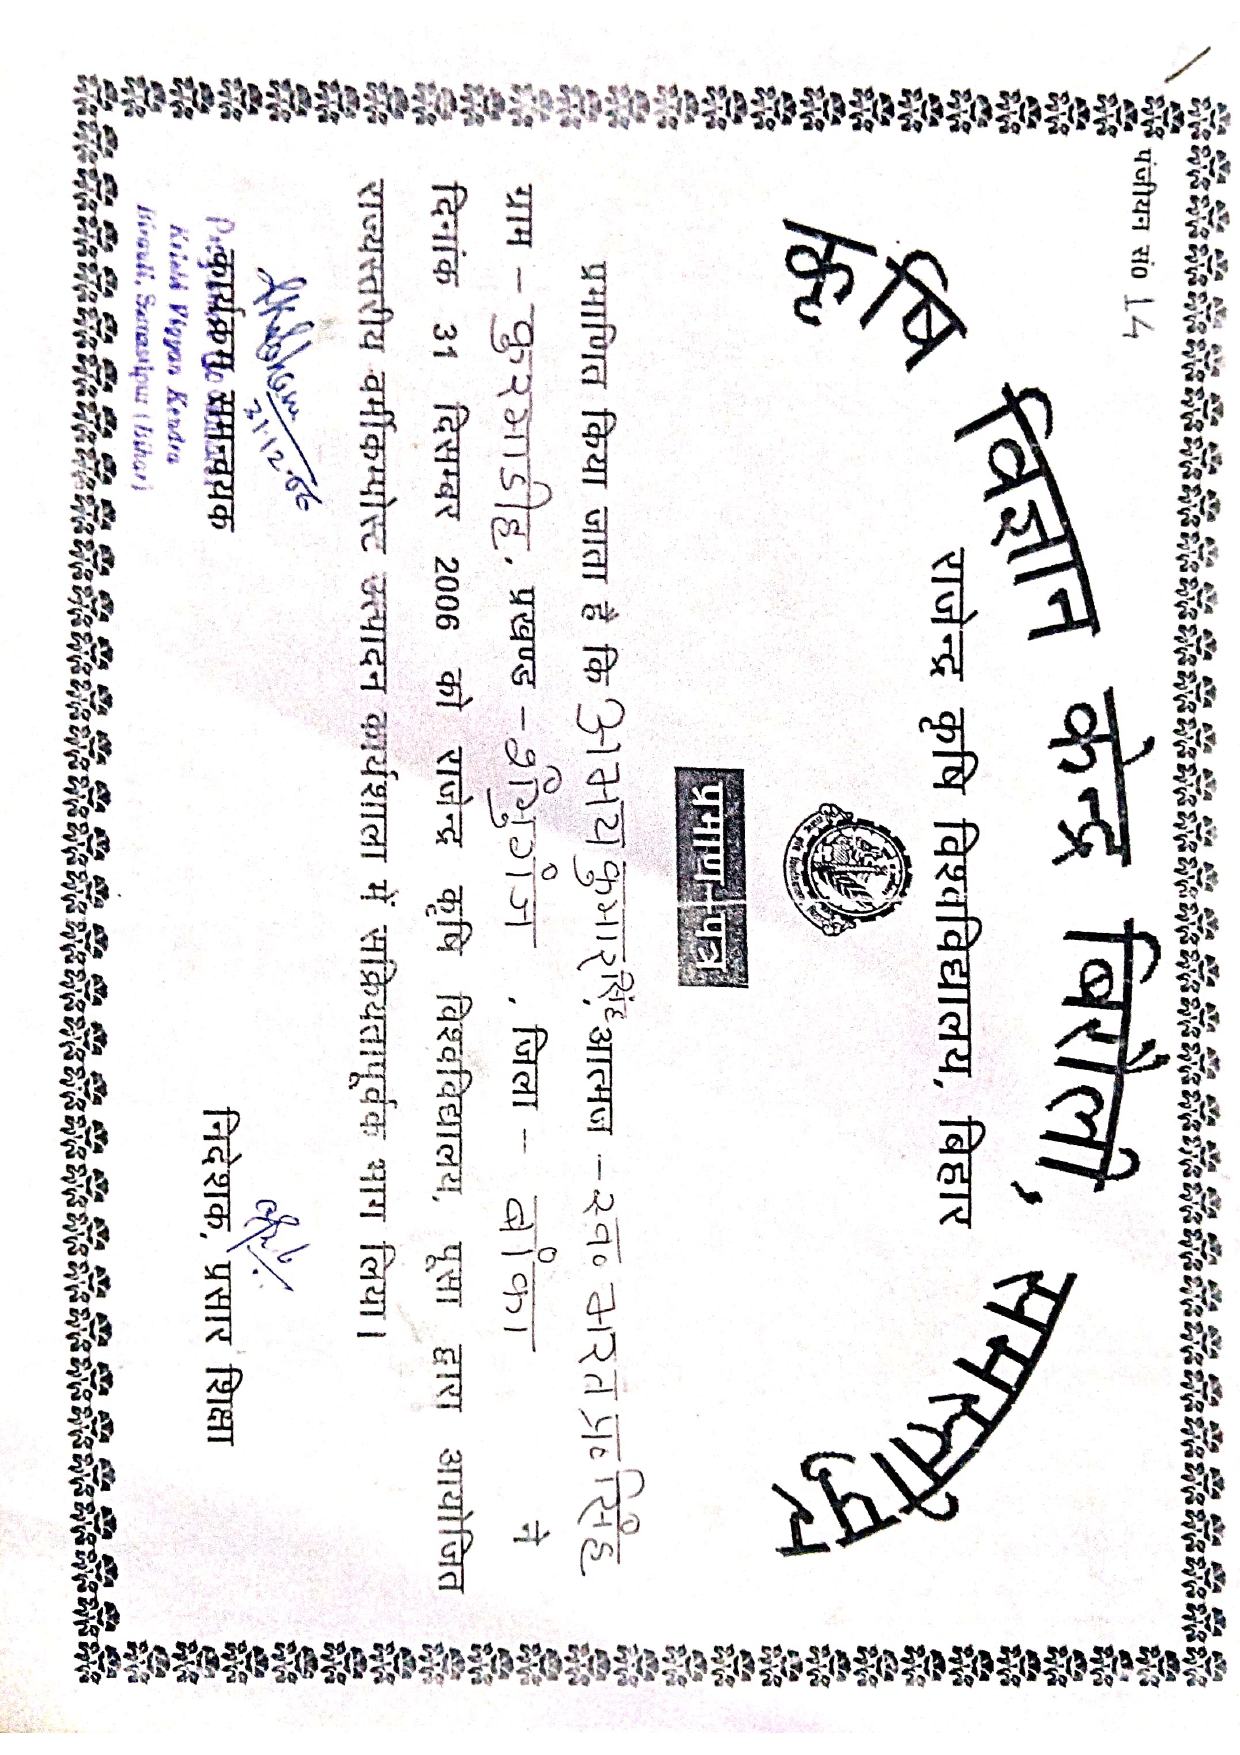 पंजीयन सं० 14
कृषि विज्ञान केन्द्र बिरौली, समस्तीपुर
राजेन्द्र कृषि विश्वविद्यालय, बिहार
प्रमाण-पत्र
प्रमाणित किया जाता है कि अभय कुमार सिंह, आत्मज - स्व० भारत प्र० सिंह
ग्राम - कुरमाडीह, प्रखण्ड - शंभुगंज, जिला - बाँका ने
दिनांक 31 दिसम्बर 2006 को राजेन्द्र कृषि विश्वविद्यालय, पूसा द्वारा आयोजित
राज्यस्तरीय वर्मीकम्पोस्ट उत्पादन कार्यशाला में सक्रियतापूर्वक भाग लिया।
31.12.06
कार्यक्रम समन्वयक
Krishi Vigyan Kendra
Birauli, Samastipur (Bihar)
निदेशक, प्रसार शिक्षा